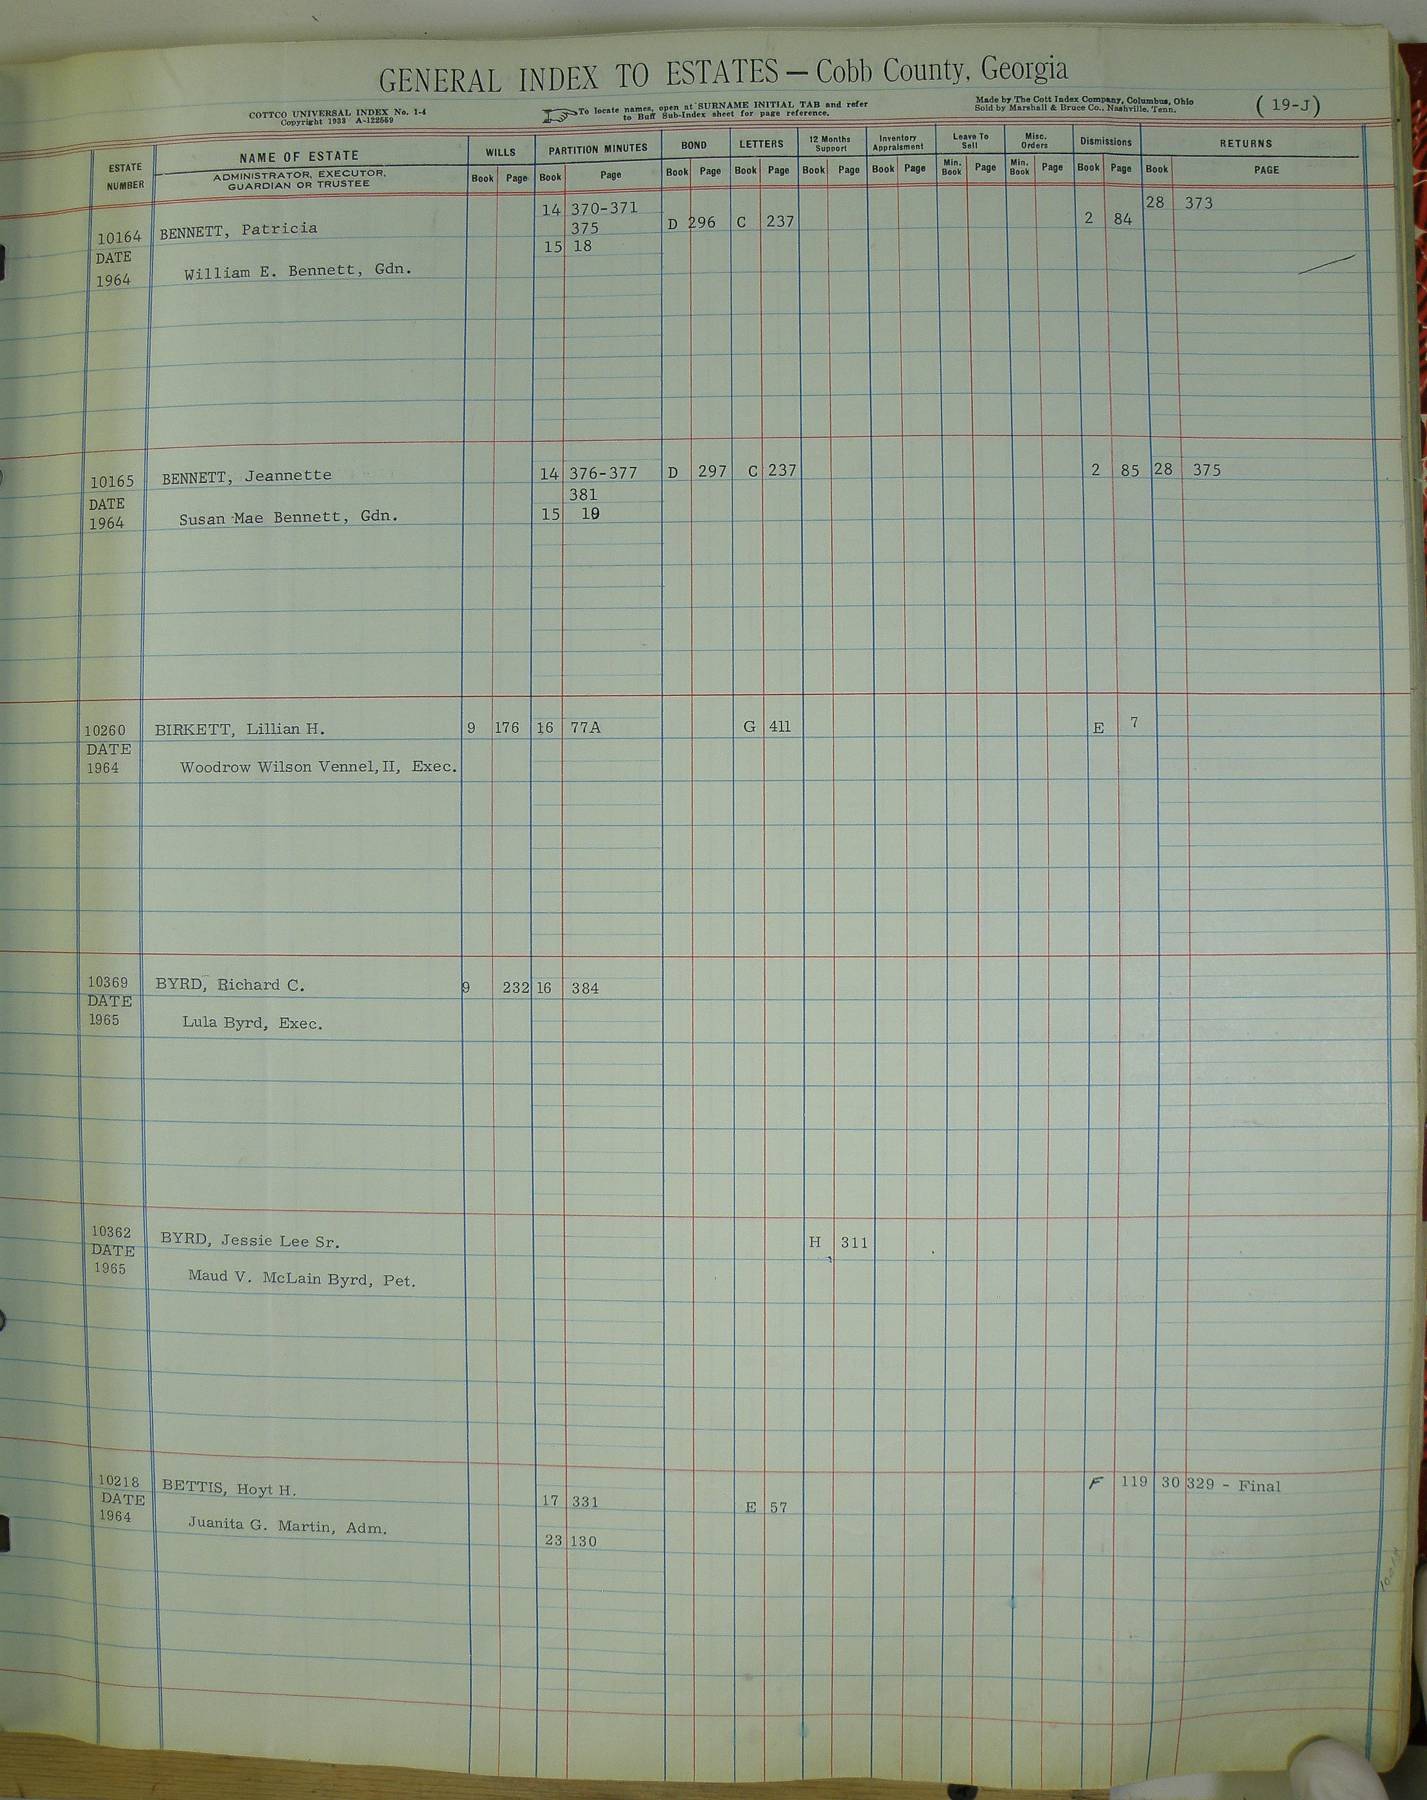 GENERAL INDEX TO ESTATES — Cobb County, Georgia
COTTCO UNIVERSAL INDEX No. 1-4
Copyright 1933 A-122569
To locate names, open at SURNAME INITIAL TAB and refer
to Buff Sub-Index sheet for page reference.
Made by The Cott Index Company, Columbus, Ohio
Sold by Marshall & Bruce Co., Nashville, Tenn.
( 19-J )
ESTATE NUMBER NAME OF ESTATE WILLS PARTITION MINUTES BOND LETTERS 12 Months Support Inventory Appraisment Leave To Sell Misc. Orders Dismissions RETURNS
ADMINISTRATOR, EXECUTOR, GUARDIAN OR TRUSTEE Book Page Book Page Book Page Book Page Book Page Book Page Min. Book Page Min. Book Page Book Page Book PAGE
14 370-371 28 373
10164 BENNETT, Patricia 375 D 296 C 237 2 84
DATE 15 18
1964 William E. Bennett, Gdn.
10165 BENNETT, Jeannette 14 376-377 D 297 C 237 2 85 28 375
DATE 381
1964 Susan Mae Bennett, Gdn. 15 19
10260 BIRKETT, Lillian H. 9 176 16 77A G 411 E 7
DATE
1964 Woodrow Wilson Vennel, II, Exec.
10369 BYRD, Richard C. 9 232 16 384
DATE
1965 Lula Byrd, Exec.
10362 BYRD, Jessie Lee Sr. H 311
DATE
1965 Maud V. McLain Byrd, Pet.
10218 BETTIS, Hoyt H. F 119 30 329 - Final
DATE 17 331 E 57
1964 Juanita G. Martin, Adm.
23 130